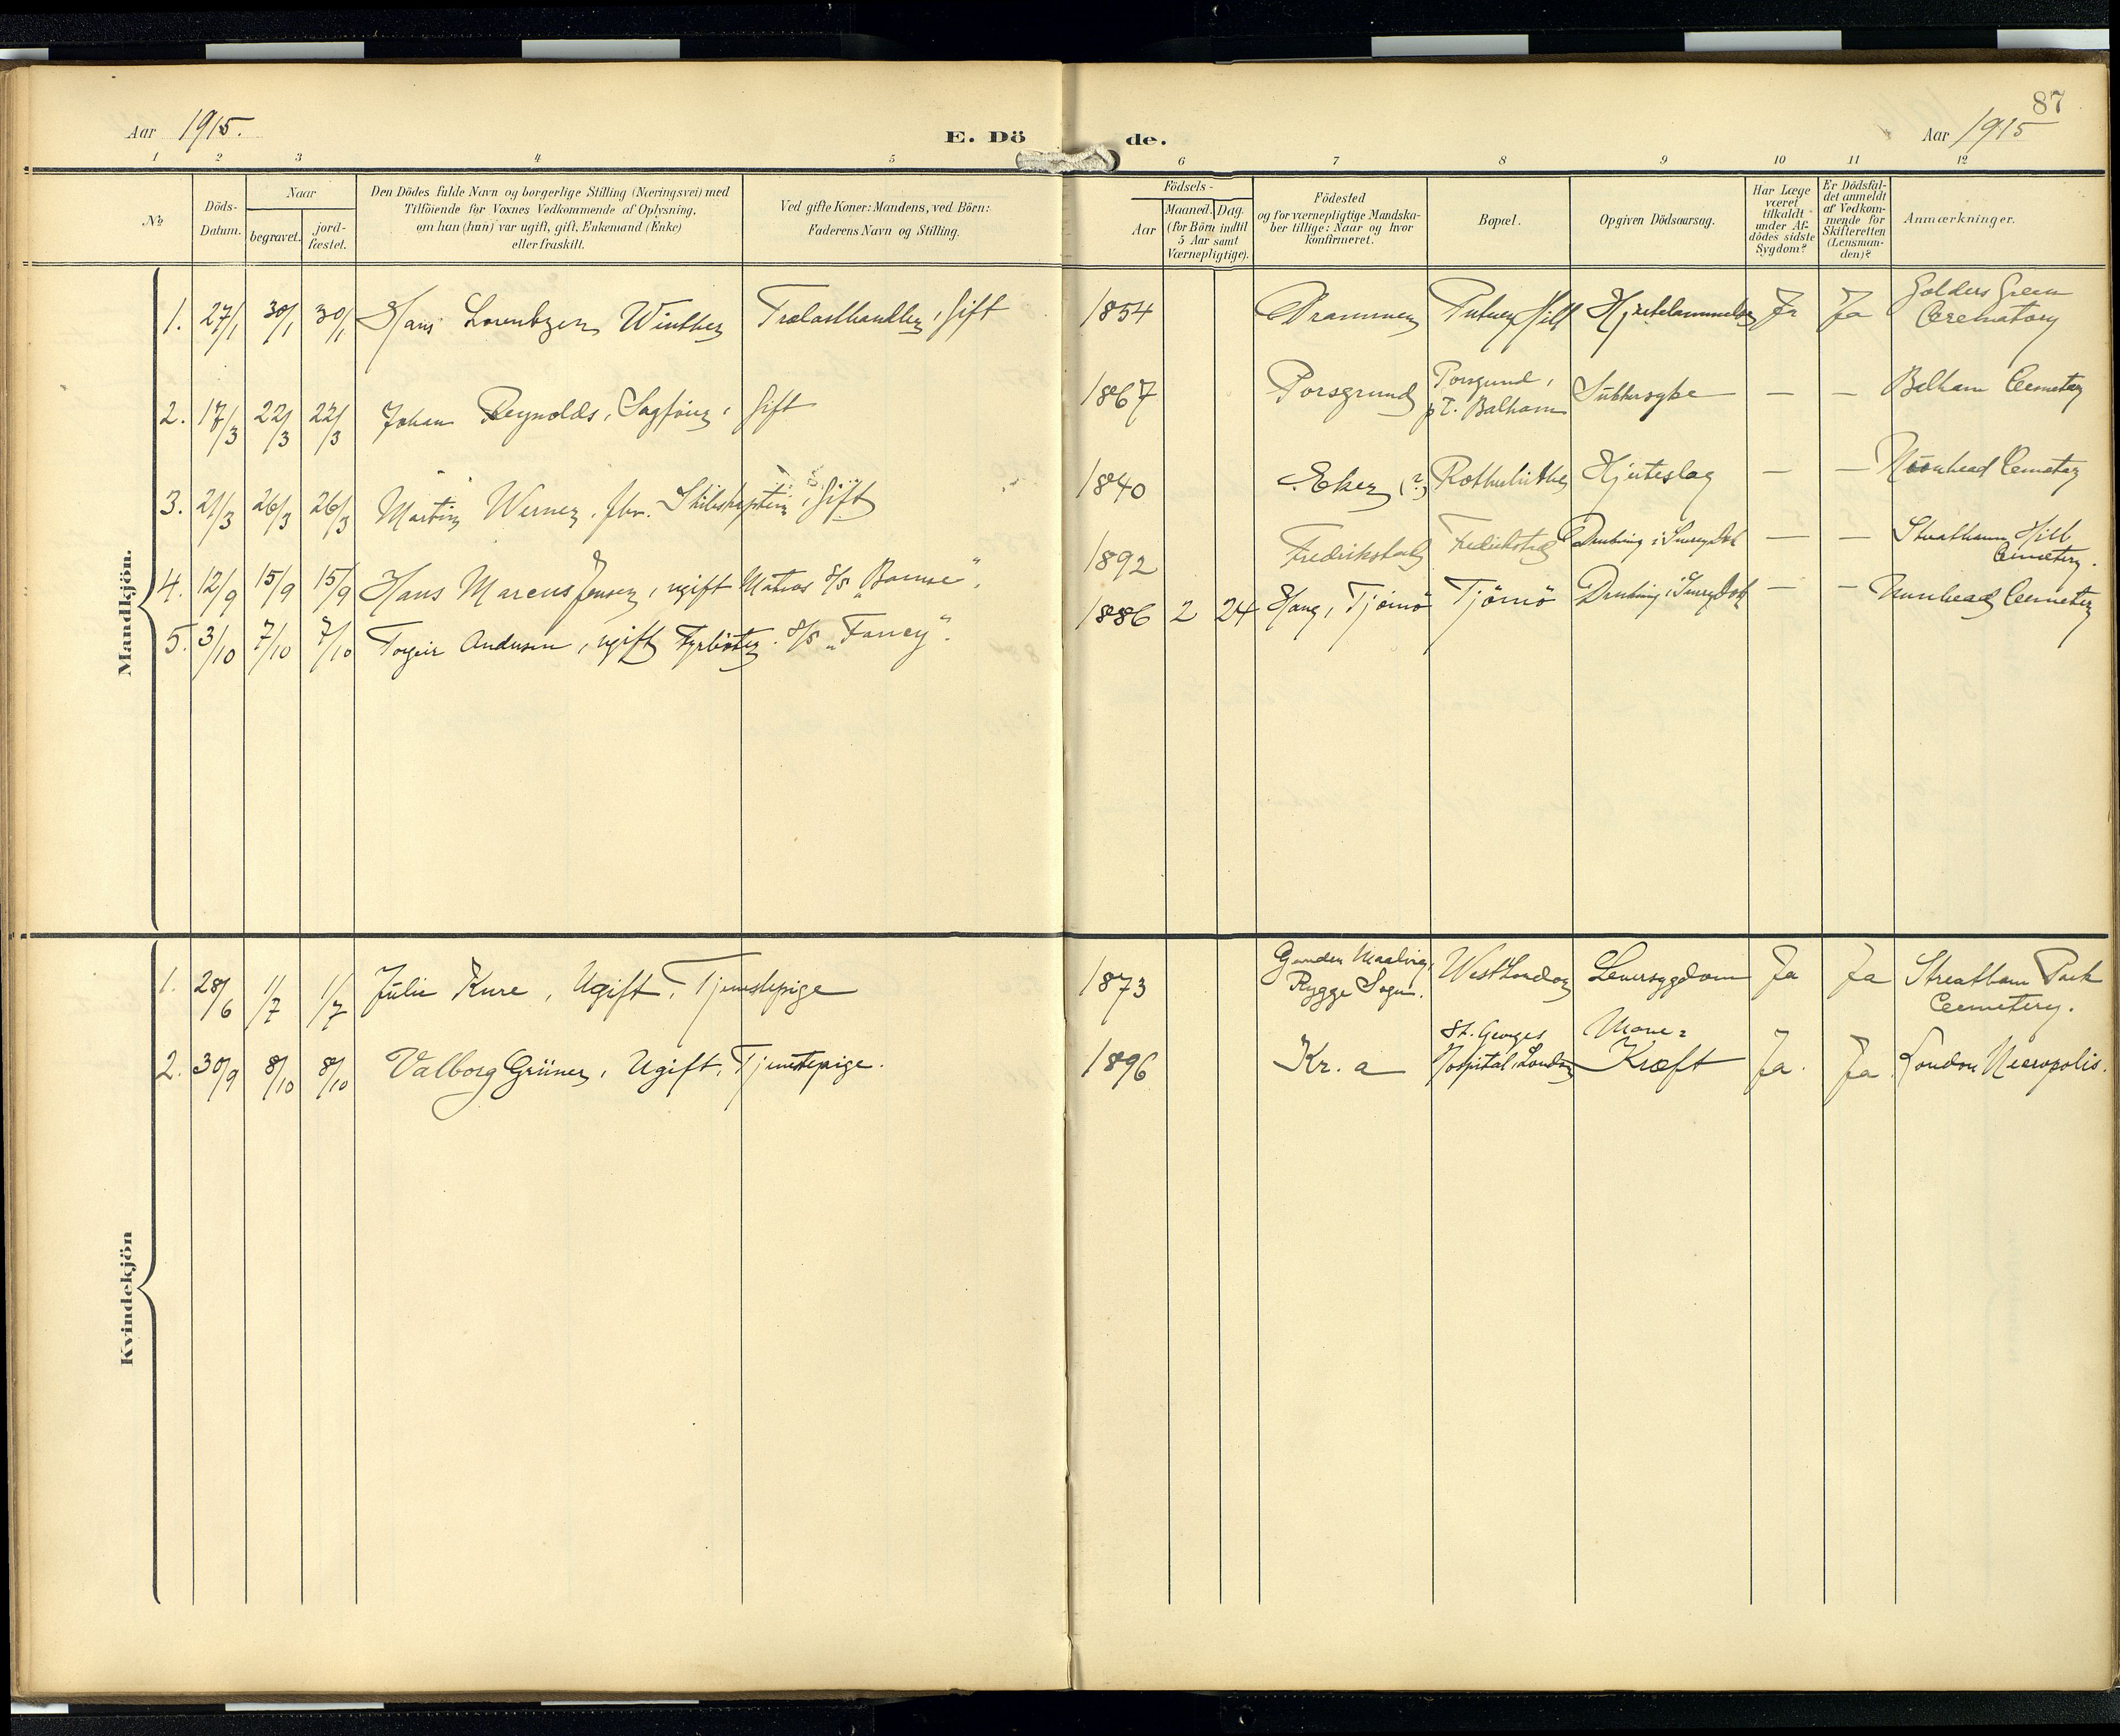 87
Aar 1915.
E. Dö de.
Aar 1915
1 2 3 4 5 6 7 8 9 10 11 12
No
Döds-Datum.
Naar
begravet.
jord-fæstet.
Den Dödes fulde Navn og borgerlige Stilling (Næringsvei) med
Tilföiende for Voxnes Vedkommende af Oplysning,
om han (hun) var ugift, gift, Enkemand (Enke)
eller fraskilt.
Ved gifte Koner: Mandens, ved Börn:
Faderens Navn og Stilling.
Födsels-
Aar
Maaned. Dag.
(for Börn indtil
5 Aar samt
Værnepligtige).
Födested
og for værnepligtige Mandska-
ber tillige: Naar og hvor
konfirmeret.
Bopæl.
Opgiven Dödsaarsag.
Har Læge
været
tilkaldt
under Af-
dödes sidste
Sygdom?
Er Dödsfal-
det anmeldt
af Vedkom-
mende for
Skifteretten
(Lensman-
den)?
Anmærkninger.
Mandkjön.
1. 27/1 30/1 30/1 Hans Lorentzen Winther Trælasthandler, Gift 1854 Drammen Putney Hill Hjertelammelse Ja Ja Golders Green
Crematory
2. 17/3 22/3 22/3 Johan Reynolds, Sagfører, Gift 1867 Porsgrund Porsgrund,
p.T. Balham Sukkersyke — — Balham Cemetery
3. 21/3 26/3 26/3 Martin Werner, fhv. Skibskaptein, Gift 1840 Eker (?) Rotherhithe Hjerteslag — — Nunhead Cemetery
4. 12/9 15/9 15/9 Hans Marcus Jensen, ugift Matros S/S "Bamse". 1892 Fredrikstad Fredrikstad Drukning i Surrey Dok — — Streatham Hill
Cemetery.
5. 3/10 7/10 7/10 Torgeir Andersen, ugift Fyrbøter. S/S "Fancy". 1886 2 24 Haug, Tjömö Tjömö Drukning i Surrey Dok — — Nunhead Cemetery
Kvindekjön
1. 28/6 1/7 1/7 Julie Kure, Ugift, Tjenestepige 1873 Gaarden
Rygge Sogn. West London Leversygdom Ja Ja Streatham Park
Cemetery.
2. 30/9 8/10 8/10 Valborg Grüner, Ugift, Tjenestepige. 1896 Kr.a St. Georges
Hospital, London Mave=
Kræft Ja. Ja London Necropolis.